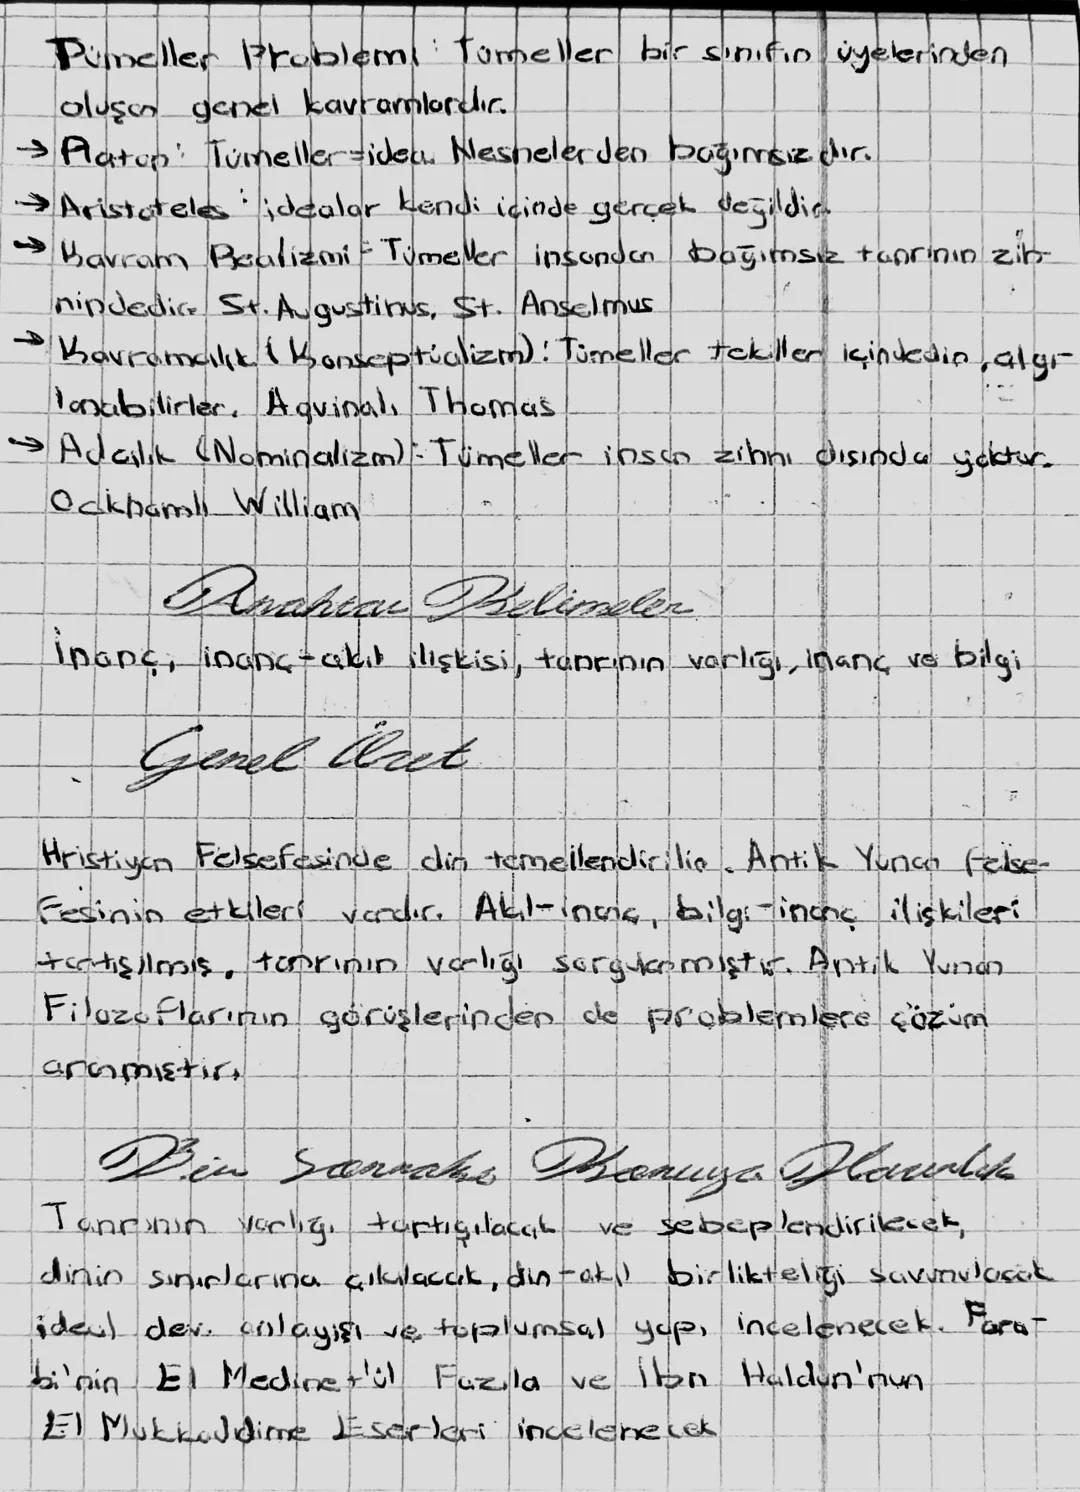 Tümeller Problemi: Tümeller bir sınıfın üyelerinden
oluşan genel kavramlardır.
→ Platon: Tümeller=idea. Nesnelerden bağımsızdır.
→ Aristoteles: idealar kendi içinde gerçek değildir.
→ Kavram Realizmi: Tümeller insandan bağımsız tanrının zih-
nindedir. St. Augustinus, St. Anselmus
→ Kavramcılık (Konseptüalizm): Tümeller tekiller içindedir, algı-
lanabilirler. Aquinalı Thomas
→ Adcılık (Nominalizm): Tümeller insan zihni dışında yoktur.
Ockhamlı William
Anahtar Kelimeler
İnanç, inanç-akıl ilişkisi, tanrının varlığı, inanç ve bilgi
Genel Özet
Hristiyan Felsefesinde din temellendirilir. Antik Yunan felse-
fesinin etkileri vardır. Akıl-inanç, bilgi-inanç ilişkileri
tartışılmış, tanrının varlığı sorgulanmıştır. Antik Yunan
Filozoflarının görüşlerinden de problemlere çözüm
aranmıştır.
Bir Sonraki Konuya Hazırlık
Tanrının varlığı tartışılacak ve sebeplendirilecek,
dinin sınırlarına çıkılacak, din-akıl birlikteliği savunulacak
ideal dev. anlayışı ve toplumsal yapı incelenecek. Fara-
bi'nin El Medinet'ül Fazıla ve İbn Haldun'nun
El Mukkaddime Eserleri incelenecek